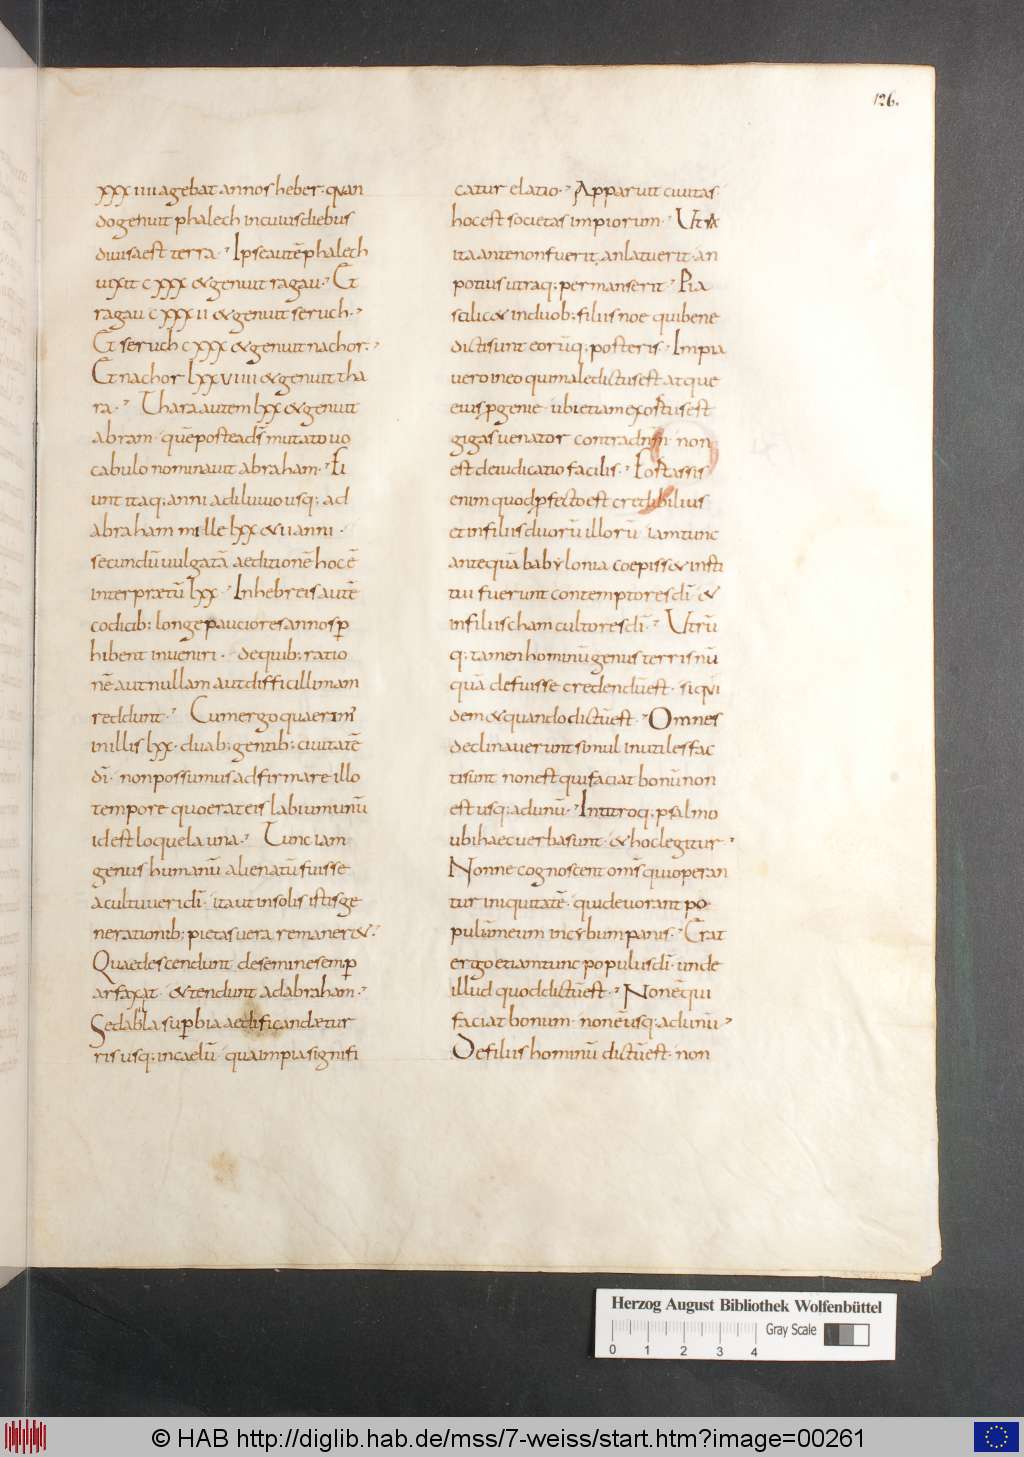 126.
xxxiiii agebat annos heber; quan
do genuit phalech in cuius diebus
diuisa est terra. Ipse autē phalech
uixit cxxx & genuit ragau. Et
ragau cxxxii & genuit seruch.
Et seruch cxxx & genuit nachor.
Et nachor lxxuiiii & genuit tha
ra. Thara autem lxx & genuit
abram. quē postea ds̄ mutato uo
cabulo nominauit abraham. Fi
unt itaq; anni a diluuio usq; ad
abraham mille lxx & ii anni.
secundū uulgatā aeditionē hoc ē
interpraetū lxx. In hebreis autē
codicib; longe pauciores annos p
hibent inueniri. de quib; ratio
nē aut nullam aut difficillimam
reddunt. Cum ergo quaerim'
in illis lxx. duab; gentib; ciuitatē
dī. non possumus adfirmare illo
tempore quo erat eis labium unū
id est loquela una. Tunc iam
genus humanū alienatū fuisse
a cultu ueri dī. ita ut in solis istis ge
nerationib; pietas uera remaner&.
Quae descendunt de semine sem p
arfaxat. & tendunt ad abraham.
Sed ab illa supbia aedificandae tur
ris usq; in caelū. qua impia signifi
catur elatio. Apparuit ciuitas
hoc est societas impiorum. Utrū
ita ante non fuerit, an latuerit. an
potius utraq; permanserit. Pia
scilic& in duob; filiis noe qui bene
dicti sunt eorūq; posteris. Impia
uero in eo qui maledictus est atque
eius pgenie. ubi etiam exortus est
gigas uenator contra dnm̄. non
est deiudicatio facilis. Fortassis
enim quod pfecto est credibilius
et in filiis duorū illorū iam tunc
antequā babylonia coepiss& insti
tui fuerunt contemptores dī. &
in filiis cham cultores dī. Utrū
q; tamen hominū genus terris nū
quā defuisse credendū est. si qui
dem & quando dictū est. Omnes
declinauerunt simul inutiles fac
ti sunt non est qui faciat bonū non
est usq; ad unū. In utroq; psalmo
ubi haec uerba sunt. & hoc legitur.
Nonne cognoscent om̄s qui operan
tur iniquitatē. qui deuorant po
pulū meum in cybum panis. Erat
ergo etiam tunc populus dī. unde
illud quod dictū est. Non ē qui
faciat bonum. non ē usq; ad unū
De filiis hominū dictū est. non
Herzog August Bibliothek Wolfenbüttel
Gray Scale
0 1 2 3 4
© HAB http://diglib.hab.de/mss/7-weiss/start.htm?image=00261